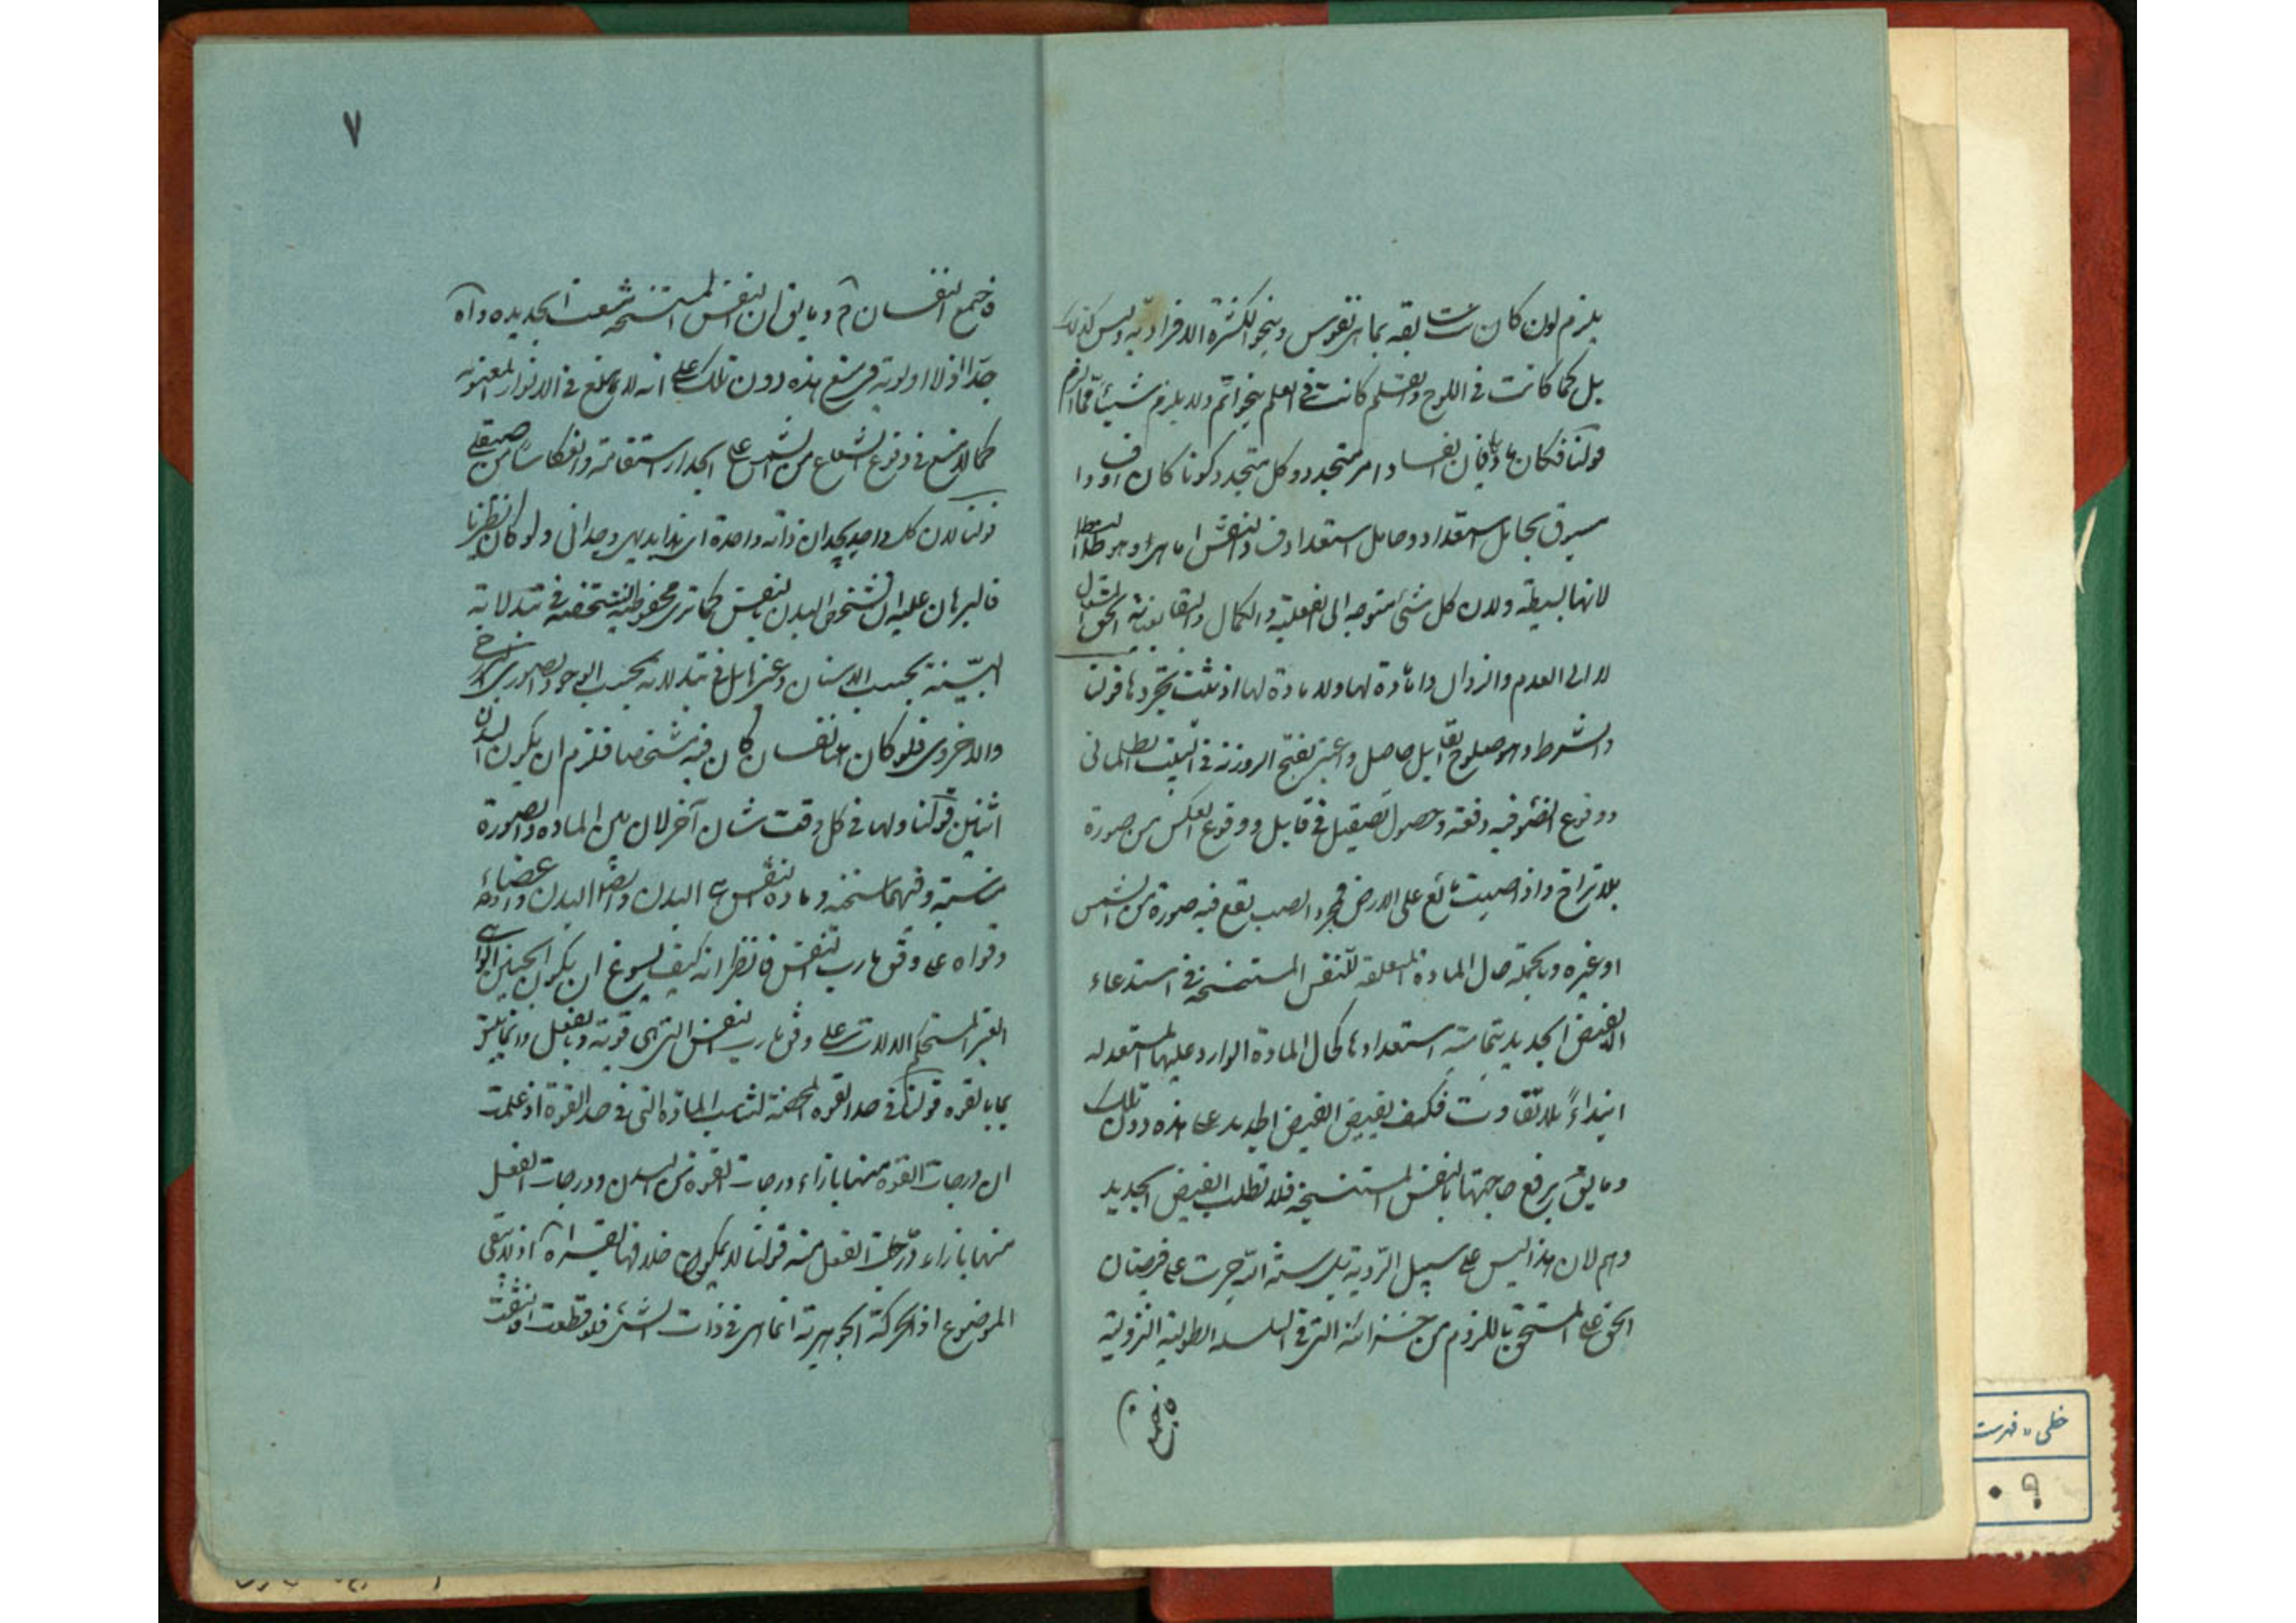 يلزم لون كان سابقه بما هى نفوس وبنحو الكثرة الافرادية وليس كذلك
بل كما كانت فى اللوح والقلم كانت فى العلم بنحو اتم ولا يلزم شيئا مما الزم
قولنا فكان باقيا فان الفساد امر متجدد وكل متجدد كونا كان او فسادا
مسبوق بحامل استعداد وحامل استعداد فساد النفس اما هى وهو باطل
لانها بسيطة ولان كل شئ متوجه الى الفعلية والكمال والبقاء بغناية الحق المتعال
لا الى العدم والزوال واما مادة لها ولا مادة لها اذ ثبت تجردها قولنا
والشرط وهو صلوح القابل حاصل واعتبر بفتح الروزنة فى البيت الظلمانى
ووقوع الضوء فيه دفعة وحصول التصيقل فى قابل ووقوع العكس من صورة
بلا تراخ واذا صببت مائع على الارض فبمجرد الصب يقع فيه صورة من الشمس
او غيره وبالجملة حال المادة المتعلقة للنفس المستنسخة فى استدعاء
الفيض الجديد بتمامية استعدادها كحال المادة الوارد عليها المستعد له
ابتداءً بلا تفاوت فكيف يفيض الفيض الجديد على هذه دون تلك
وما يق يرفع حاجتها بالنفس المستنسخة فلا تطلب الفيض الجديد
وهم لان هذا ليس على سبيل الروية بل سنة الله جرت على فيضان
الحق على المستحق باللزوم من خزائنه التى فى السلسلة الطولية النزولية
فاجتمع
٧
فاجتمع النفسان م وما يق ان النفس المستنسخة منعت الجديده واه
جدا اذ لا اولوية فى منع هذه دون تلك على انه لا تمانع فى الانوار المعنوية
كما لا تمنع فى وقوع الشعاع من الشمس على الجدار استقامة وانعكاسا من صيقلى
قولنا لان كل واحد يجد ان ذاته واحدة اى هذا بديهى وجدانى ولو كان نظريا
فالبرهان عليه ان تشخص البدن بالنفس كما ترى محفوظية التشخص فى تبدلاته
البينة بحسب الاسنان وغيرها بل فى تبدلاته بحسب الوجود الصورى البرزخى
والاخروى فلو كان هنا نفسان كان فيه تشخصان فلزم ان يكون البدن
اثنين قولنا ولها فى كل وقت شان آخر لان بين المادة والصورة
مناسبة وفيهما سنخية ومادة النفس هى البدن وايضا البدن واعضاءه
وقواه على وفق مارب النفس فانظر انه كيف يسوغ ان يكون الجنين الواهى
الغير المستحكم الالات على وفق مارب النفس التى هى قوية وبالفعل وانما يليق
بما بالقوه قولنا فى حد القوه المحضة لتناسب المادة التى فى حد القوة اذ علمت
ان درجات القوة منها بازاء درجات القوة من البدن ودرجات الفعل
منها بازاء درجات الفعل منه قولنا لا يمكن خلافها بقسر اه اذ لا يبقى
الموضوع اذ الحركة الجوهرية انما هى فى ذات الشئ فلو قطعت وانبتت
خطى - فهرست